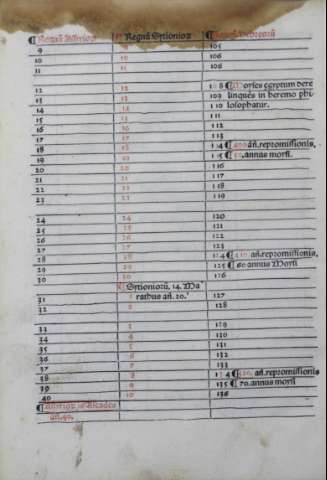 ¶ Regnū Assirioꝝ ¶ Regnū Sitionioꝝ ¶ Regnū Hebreorū
9 105
10 10 106
11 11 106
12 12 108 ¶ Moyses egyptum dere
13 13 109 linquēs in heremo phi
14 14 110 losophatur.
15 15 111
16 16 112
17 17 113
18 18 114 ¶ 400. añ. repromissionis,
19 19 115 ¶ 50. annus moysi.
20 20 116
21 21 117
22 22 118
23 23 119
24 24 120
25 25 121
26 26 122
27 27 123
28 28 124 ¶ 410. añ. repromissionis,
29 29 125 ¶ 60 annus Moysi
30 30 126
¶ Sitionioꝝ. 14. Ma
31 1 rathus añ. 20. 127
32 2 128
33 3 129
34 4 130
35 5 131
36 6 132
37 7 133
38 8 134 ¶ 420. añ. repromissionis
39 9 135 ¶ 70. annus moysi
40 10 136
¶ Assirioꝝ 10 Ascades
añ. 40.